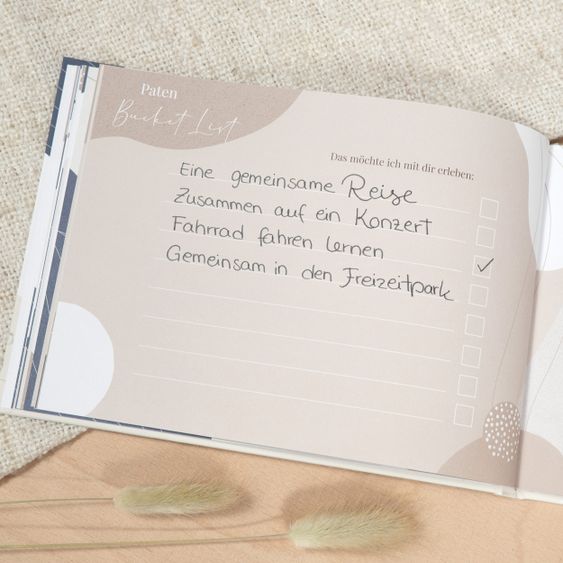 Paten
Bucket List
Das möchte ich mit dir erleben:
Eine gemeinsame Reise
Zusammen auf ein Konzert
Fahrrad fahren lernen
Gemeinsam in den Freizeitpark